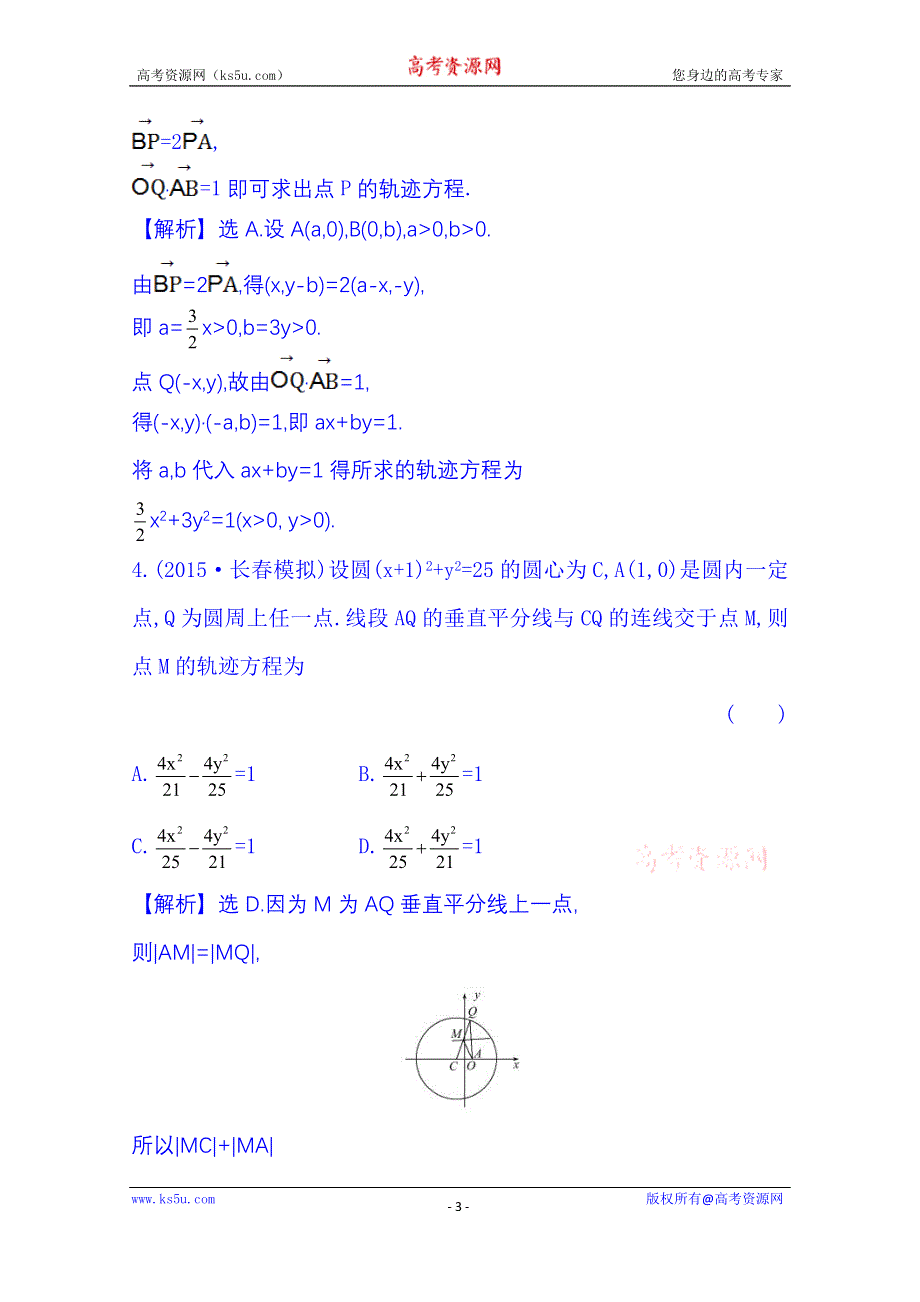 高考资源网（ks5u.com） 高考资源网 您身边的高考专家
$\overrightarrow{BP}$=2$\overrightarrow{PA}$,
$\overrightarrow{OQ}$·$\overrightarrow{AB}$=1 即可求出点 P 的轨迹方程.
【解析】选 A.设 A(a,0),B(0,b),a>0,b>0.
由$\overrightarrow{BP}$=2$\overrightarrow{PA}$,得(x,y-b)=2(a-x,-y),
即 a=$\frac{3}{2}$x>0,b=3y>0.
点 Q(-x,y),故由$\overrightarrow{OQ}$·$\overrightarrow{AB}$=1,
得(-x,y)·(-a,b)=1,即 ax+by=1.
将 a,b 代入 ax+by=1 得所求的轨迹方程为
$\frac{3}{2}$x²+3y²=1(x>0, y>0).
4.(2015·长春模拟)设圆(x+1)²+y²=25 的圆心为 C,A(1,0)是圆内一定
点,Q 为圆周上任一点.线段 AQ 的垂直平分线与 CQ 的连线交于点 M,则
点 M 的轨迹方程为
(　　)
A.$\frac{4x^2}{21}-\frac{4y^2}{25}$=1 B.$\frac{4x^2}{21}+\frac{4y^2}{25}$=1
C.$\frac{4x^2}{25}-\frac{4y^2}{21}$=1 D.$\frac{4x^2}{25}+\frac{4y^2}{21}$=1
高考资源网
【解析】选 D.因为 M 为 AQ 垂直平分线上一点,
则|AM|=|MQ|,
y
Q
M
A
C O x
所以|MC|+|MA|
www.ks5u.com - 3 - 版权所有@高考资源网